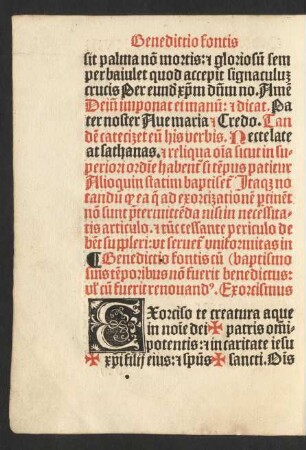 Benedictio fontis
sit palma nõ mortis: ⁊ gloriosũ sem
per baiulet quod accepit signaculuʒ
crucis Per eundẽ xp̃m dñm no. Amẽ
Deĩ imponat ei manũ: ⁊ dicat. Pa
ter noster Aue maria ⁊ Credo. Tan
dẽ catecizet eũ his verbis. Nec te late
at sathanas. ⁊ reliqua oĩa sicut in su
periori ordĩe habent̃ si tẽpus patitur
Alioquin statim baptiset̃ Itaqʒ no
tandũ ꝙ ea q̃ ad exorizationẽ ꝑtinẽt
nõ sunt p̃termittẽda nisi in necessita
tis articulo. ⁊ tũc tessante periculo de
bẽt suppleri: vt seruet̃ vniformitas in
¶ Benedictio fontis cũ (baptismo
suis tẽporibus nõ fuerit benedictus:
vl̃ cũ fuerit renouandꝰ. Exorcismus
Exorciso te creatura aque
in noĩe dei ✠ patris om̃i
potentis: ⁊ in caritate iesu
✠ xp̃i filij eius: ⁊ spũs ✠ sancti. Dis